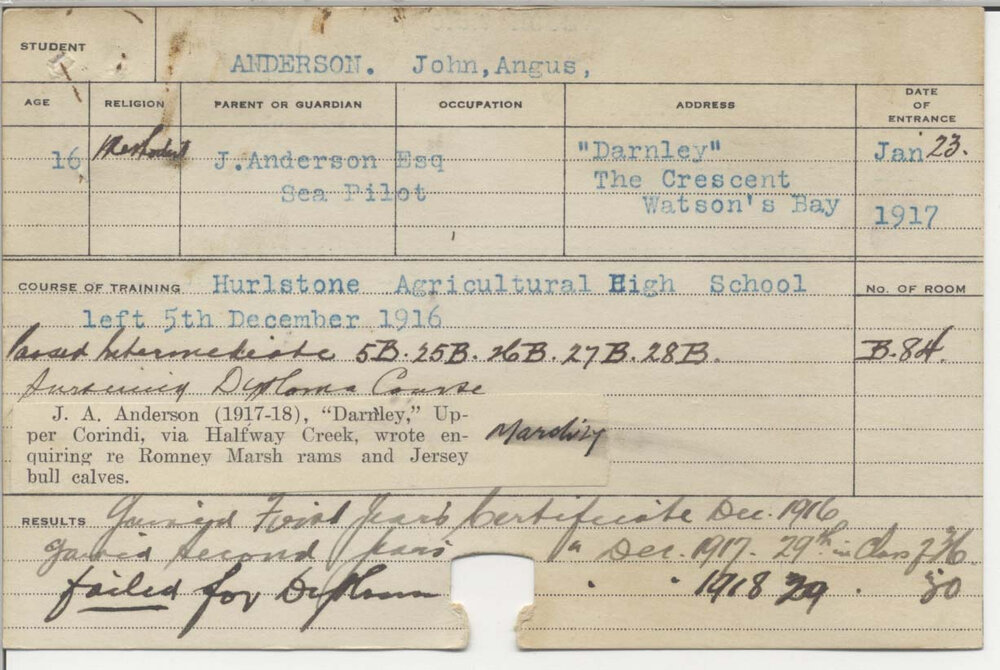 STUDENT
ANDERSON. John,Angus,
AGE RELIGION PARENT OR GUARDIAN OCCUPATION ADDRESS DATE OF ENTRANCE
16 Methodist J.Anderson Esq "Darnley" Jan 23.
Sea Pilot The Crescent
Watson's Bay 1917
COURSE OF TRAINING Hurlstone Agricultural High School No. OF ROOM
left 5th December 1916
Passed Intermediate 5B. 25B. 26B. 27B. 28B. B.84.
Diploma Course
J. A. Anderson (1917-18), "Darnley," Up-
per Corindi, via Halfway Creek, wrote en-
quiring re Romney Marsh rams and Jersey
bull calves.
RESULTS Gained First Year's Certificate Dec. 1916
Gained second year's " Dec. 1917 - 29th in Class of 36
failed for Diploma " " 1918 29 " 30